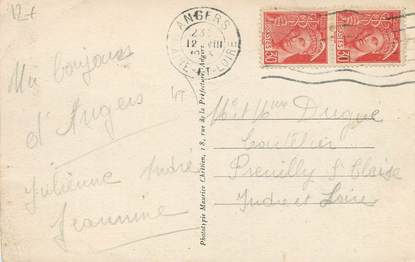 12€
ANGERS
12 VIII
MAINE-ET-LOIRE
POSTES
30
POSTES
30
bonjours
d'Angers
Julienne André
Jeannine
Phototypie Maurice Chrétien, 18, rue de la Préfecture, Angers
Mr et Mme Dugué
Preuilly S/ Claise
Indre et Loire